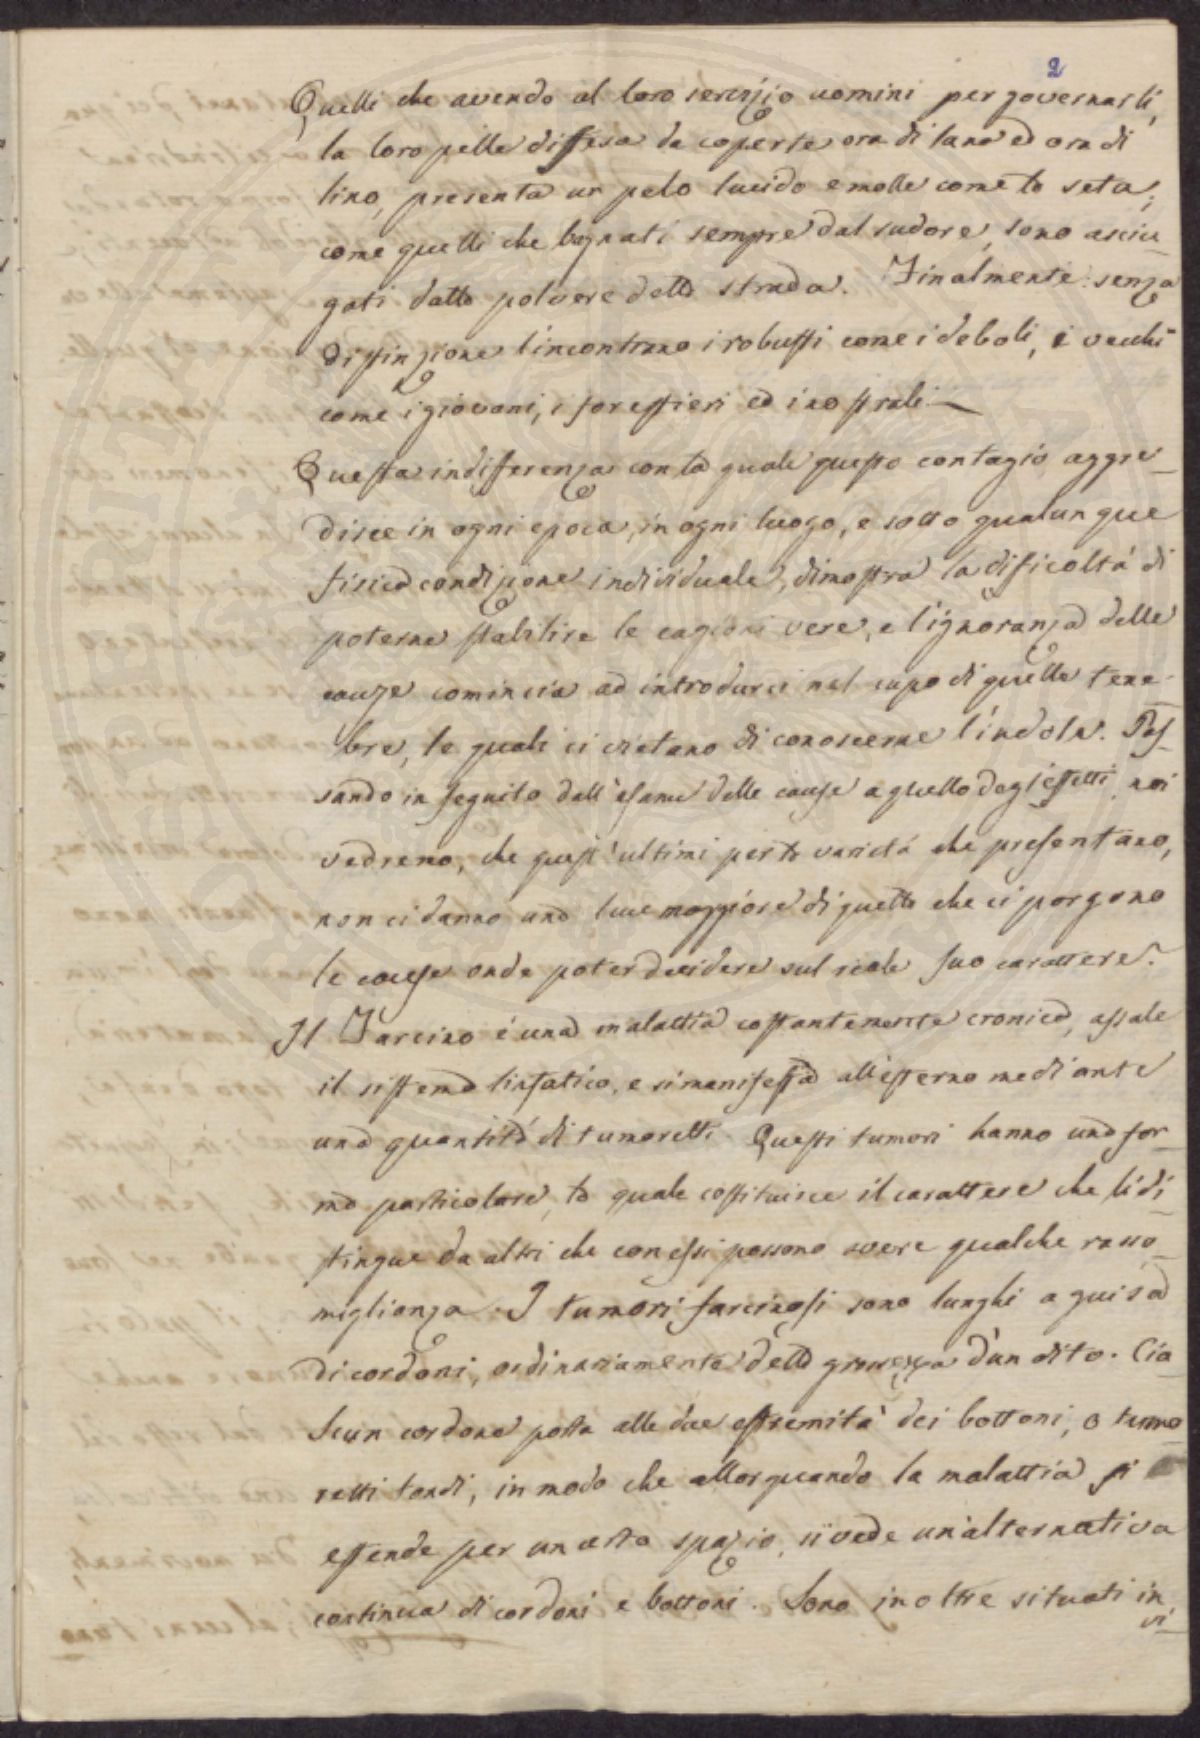 2
Quelli che avendo al loro servizio uomini per governarli,
la loro pelle diffesa da coperte ora di lana ed ora di
lino, presenta un pelo lucido e molle come la seta;
come quelli che bagnati sempre dal sudore, sono asciu-
gati dalla polvere della strada. Finalmente senza
distinzione l'incontrano i robusti come i deboli, i vecchi
come i giovani, i forestieri ed i nostrali.
Questa indifferenza con la quale questo contagio aggre-
disce in ogni epoca, in ogni luogo, e sotto qualunque
fisica condizione individuale, dimostra la dificoltà di
poterne stabilire le cagioni vere, e l'ignoranza delle
cauze comincia ad introdurci nel cupo di quelle tene-
bre, le quali ci vietano di conoscerne l'indole. Pas-
sando in seguito dall'esame delle cause a quello degl'effetti, noi
vedremo, che quest'ultimi per la varietà che presentano,
non ci danno una luce maggiore di quella che ci porgono
le cause onde poter decidere sul reale suo carattere.
Il Farcino è una malattia costantemente cronica, assale
il sistema linfatico, e si manifesta all'esterno mediante
una quantità di tumoretti. Questi tumori hanno una for-
ma particolare, la quale costituisce il carattere che li di-
stingue da altri che con essi possono avere qualche rasso-
miglianza. I tumori farcinosi sono lunghi a guisa
di cordoni, ordinariamente della grossezza d'un dito. Cia-
scun cordone porta alle due estremità dei bottoni, o tumo-
retti tondi, in modo che allorquando la malattia si
estende per un certo spazio, si vede un'alternativa
continua di cordoni e bottoni. Sono inoltre situati in
vi-